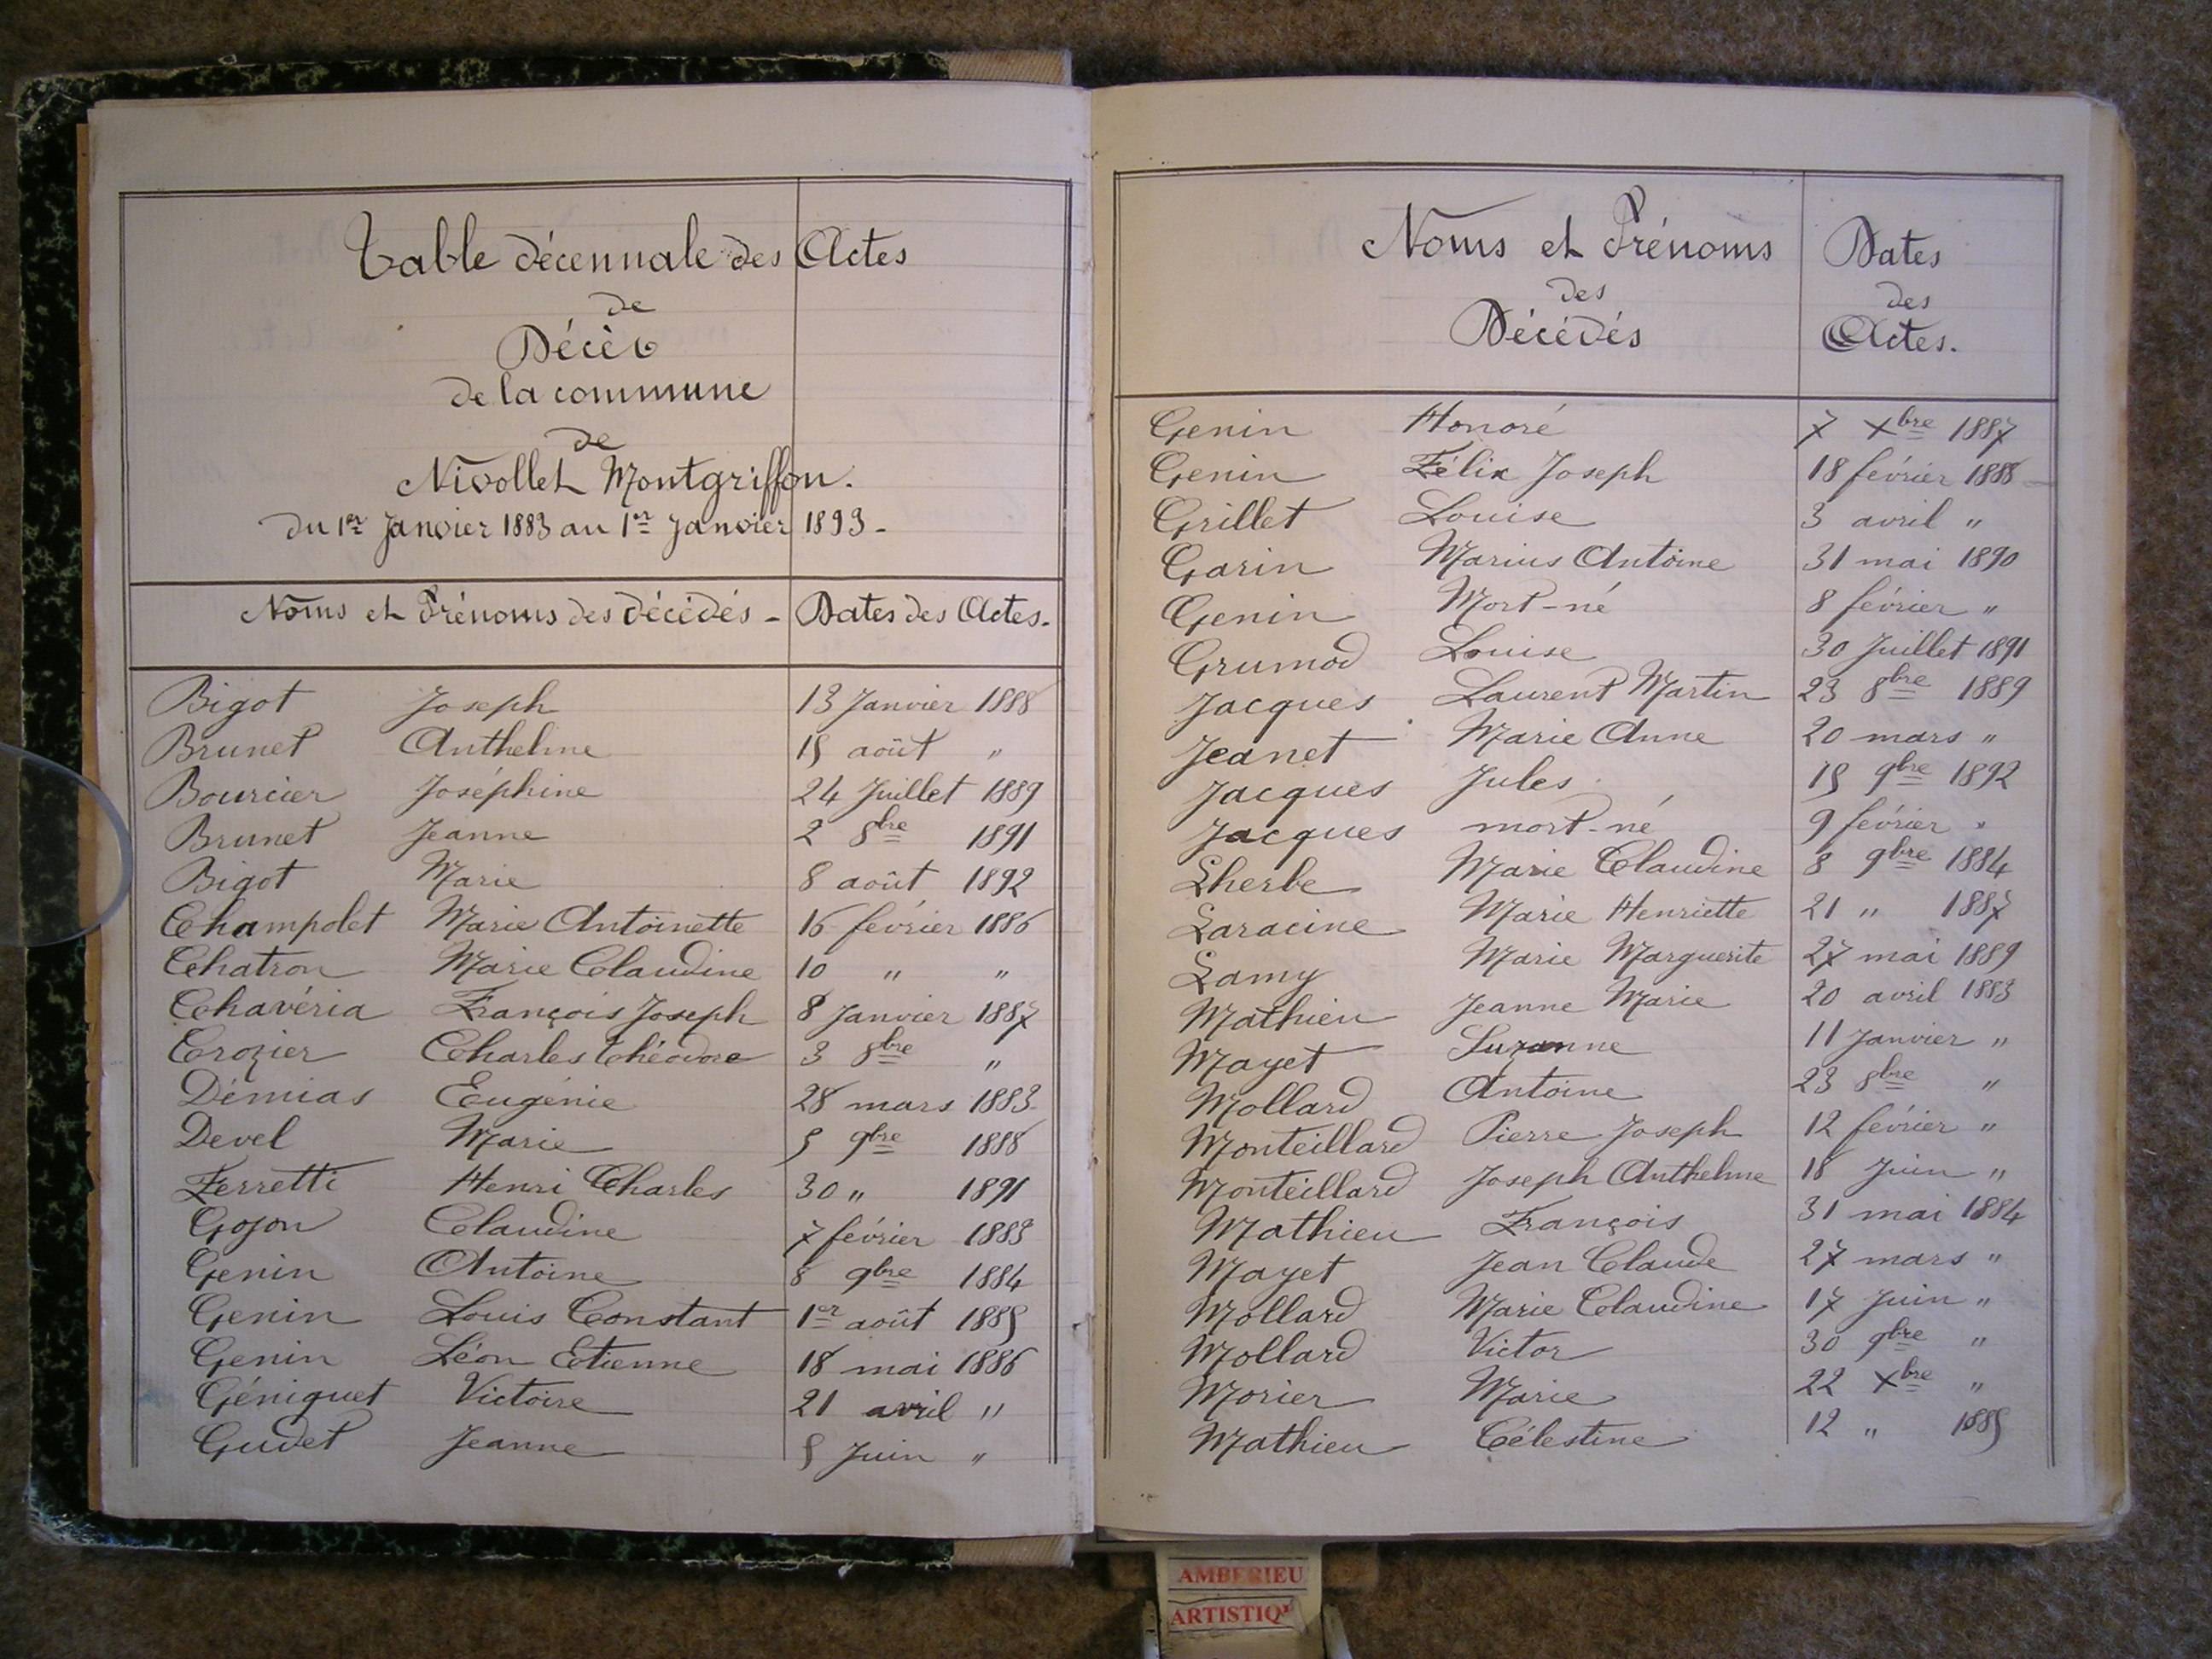 Table décennale des Actes
de
Décès
de la commune
de
Nivollet Montgriffon.
du 1er Janvier 1883 au 1er Janvier 1893 -
Noms et Prénoms des décédés - Dates des Actes.
Bigot Joseph 13 Janvier 1888
Brunet Anthelme 15 août "
Bourcier Joséphine 24 Juillet 1889
Brunet Jeanne 2 8bre 1891
Bigot Marie 8 août 1892
Champolet Marie Antoinette 16 février 1886
Chatron Marie Claudine 10 " "
Chavéria François Joseph 8 Janvier 1887
Crozier Charles Théodore 3 8bre "
Démias Eugénie 28 mars 1883
Devel Marie 5 9bre 1888
Ferretti Henri Charles 30 " 1891
Gojon Claudine 7 février 1883
Genin Antoine 8 9bre 1884
Genin Louis Constant 1er août 1885
Genin Léon Etienne 18 mai 1886
Géniquet Victoire 21 avril "
Gudet Jeanne 5 Juin "
Noms et Prénoms Dates
des des
Décédés Actes.
Genin Honoré 7 Xbre 1887
Genin Félix Joseph 18 février 1888
Grillet Louise 3 avril "
Garin Marius Antoine 31 mai 1890
Genin Mort-né 8 février "
Grumod Louise 30 Juillet 1891
Jacques Laurent Martin 23 8bre 1889
Jeanet Marie Anne 20 mars "
Jacques Jules 15 9bre 1892
Jacques mort-né 9 février "
Lherbe Marie Claudine 8 9bre 1884
Laracine Marie Henriette 21 " 1887
Lamy Marie Marguerite 27 mai 1889
Mathieu Jeanne Marie 20 avril 1883
Mayet Suzanne 11 Janvier "
Mollard Antoine 23 8bre "
Monteillard Pierre Joseph 12 février "
Monteillard Joseph Anthelme 18 Juin "
Mathieu François 31 mai 1884
Mayet Jean Claude 27 mars "
Mollard Marie Claudine 17 Juin "
Mollard Victor 30 9bre "
Morier Marie 22 Xbre "
Mathieu Célestine 12 " 1885
AMBERIEU
ARTISTIQ